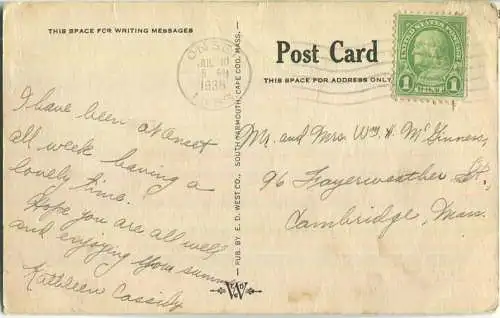 THIS SPACE FOR WRITING MESSAGES
Post Card
THIS SPACE FOR ADDRESS ONLY
ONSET
JUL 10
5 PM
MASS.
UNITED STATES POSTAGE
1 1
I have been at Onset
all week having a
lovely time.
Hope you are all well
and enjoying your summer
Kathleen Cassidy
PUB. BY E. D. WEST CO., SOUTH YARMOUTH, CAPE COD, MASS.
Mr. and Mrs. Wm H. McGinness,
96 Fayerweather St.
Cambridge, Mass.